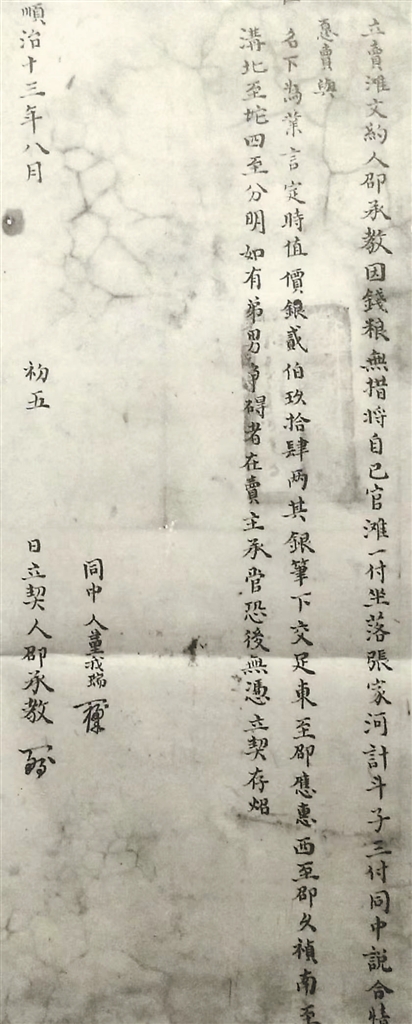 立賣滩文約人邵承教因錢粮無措将自己官滩一付坐落張家河計斗子三付同中說合情
愿賣與
名下為業言定時值價銀貳伯玖拾肆两其銀筆下交足東至邵應惠西至邵久禎南至
溝北至坨四至分明如有弟男争碍者在賣主承管恐後無憑立契存炤
順治十三年八月 初五 日立契人邵承教
同中人董戎瑞